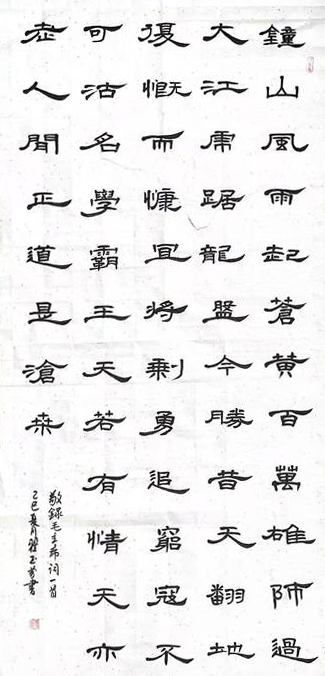 鐘山風雨起蒼黃百萬雄師過
大江虎踞龍盤今勝昔天翻地
復慨而慷宜將剩勇追窮寇不
可沽名學霸王天若有情天亦
老人間正道是滄桑
敬錄毛主席詞一首
巳夏月玉書